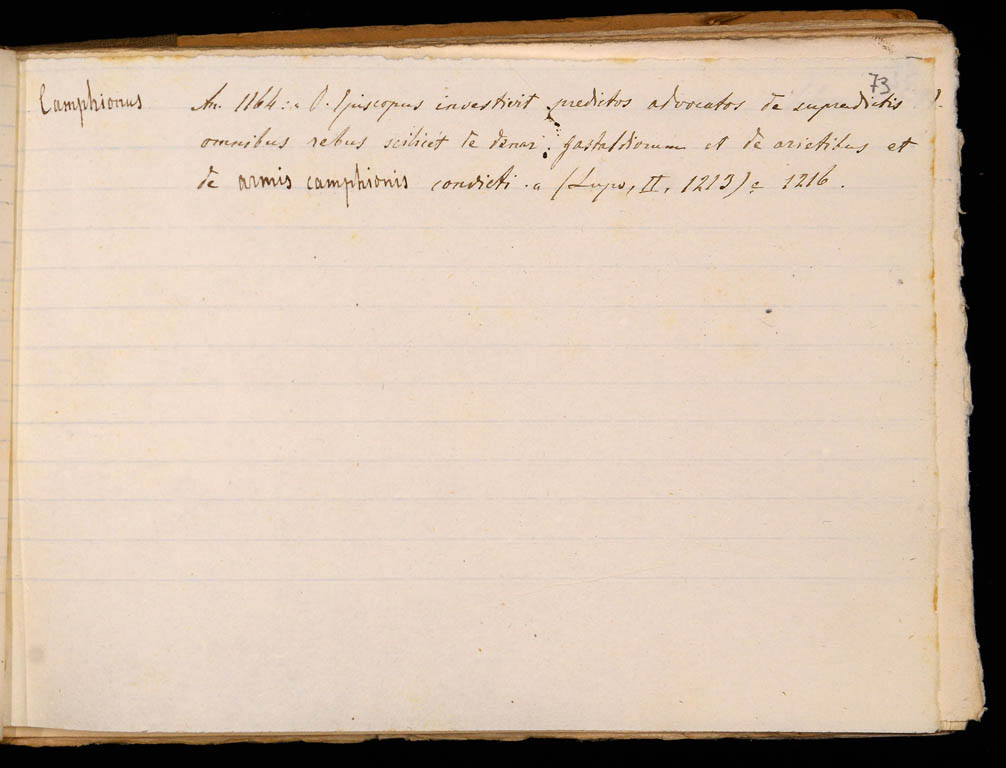 73
Camphionus An. 1164: « D. Episcopus investivit predictos advocatos de supradictis
omnibus rebus scilicet de denar: gastaldiorum et de arietibus et
de armis camphionis convicti. » (Lupo, II, 1213) e 1216.